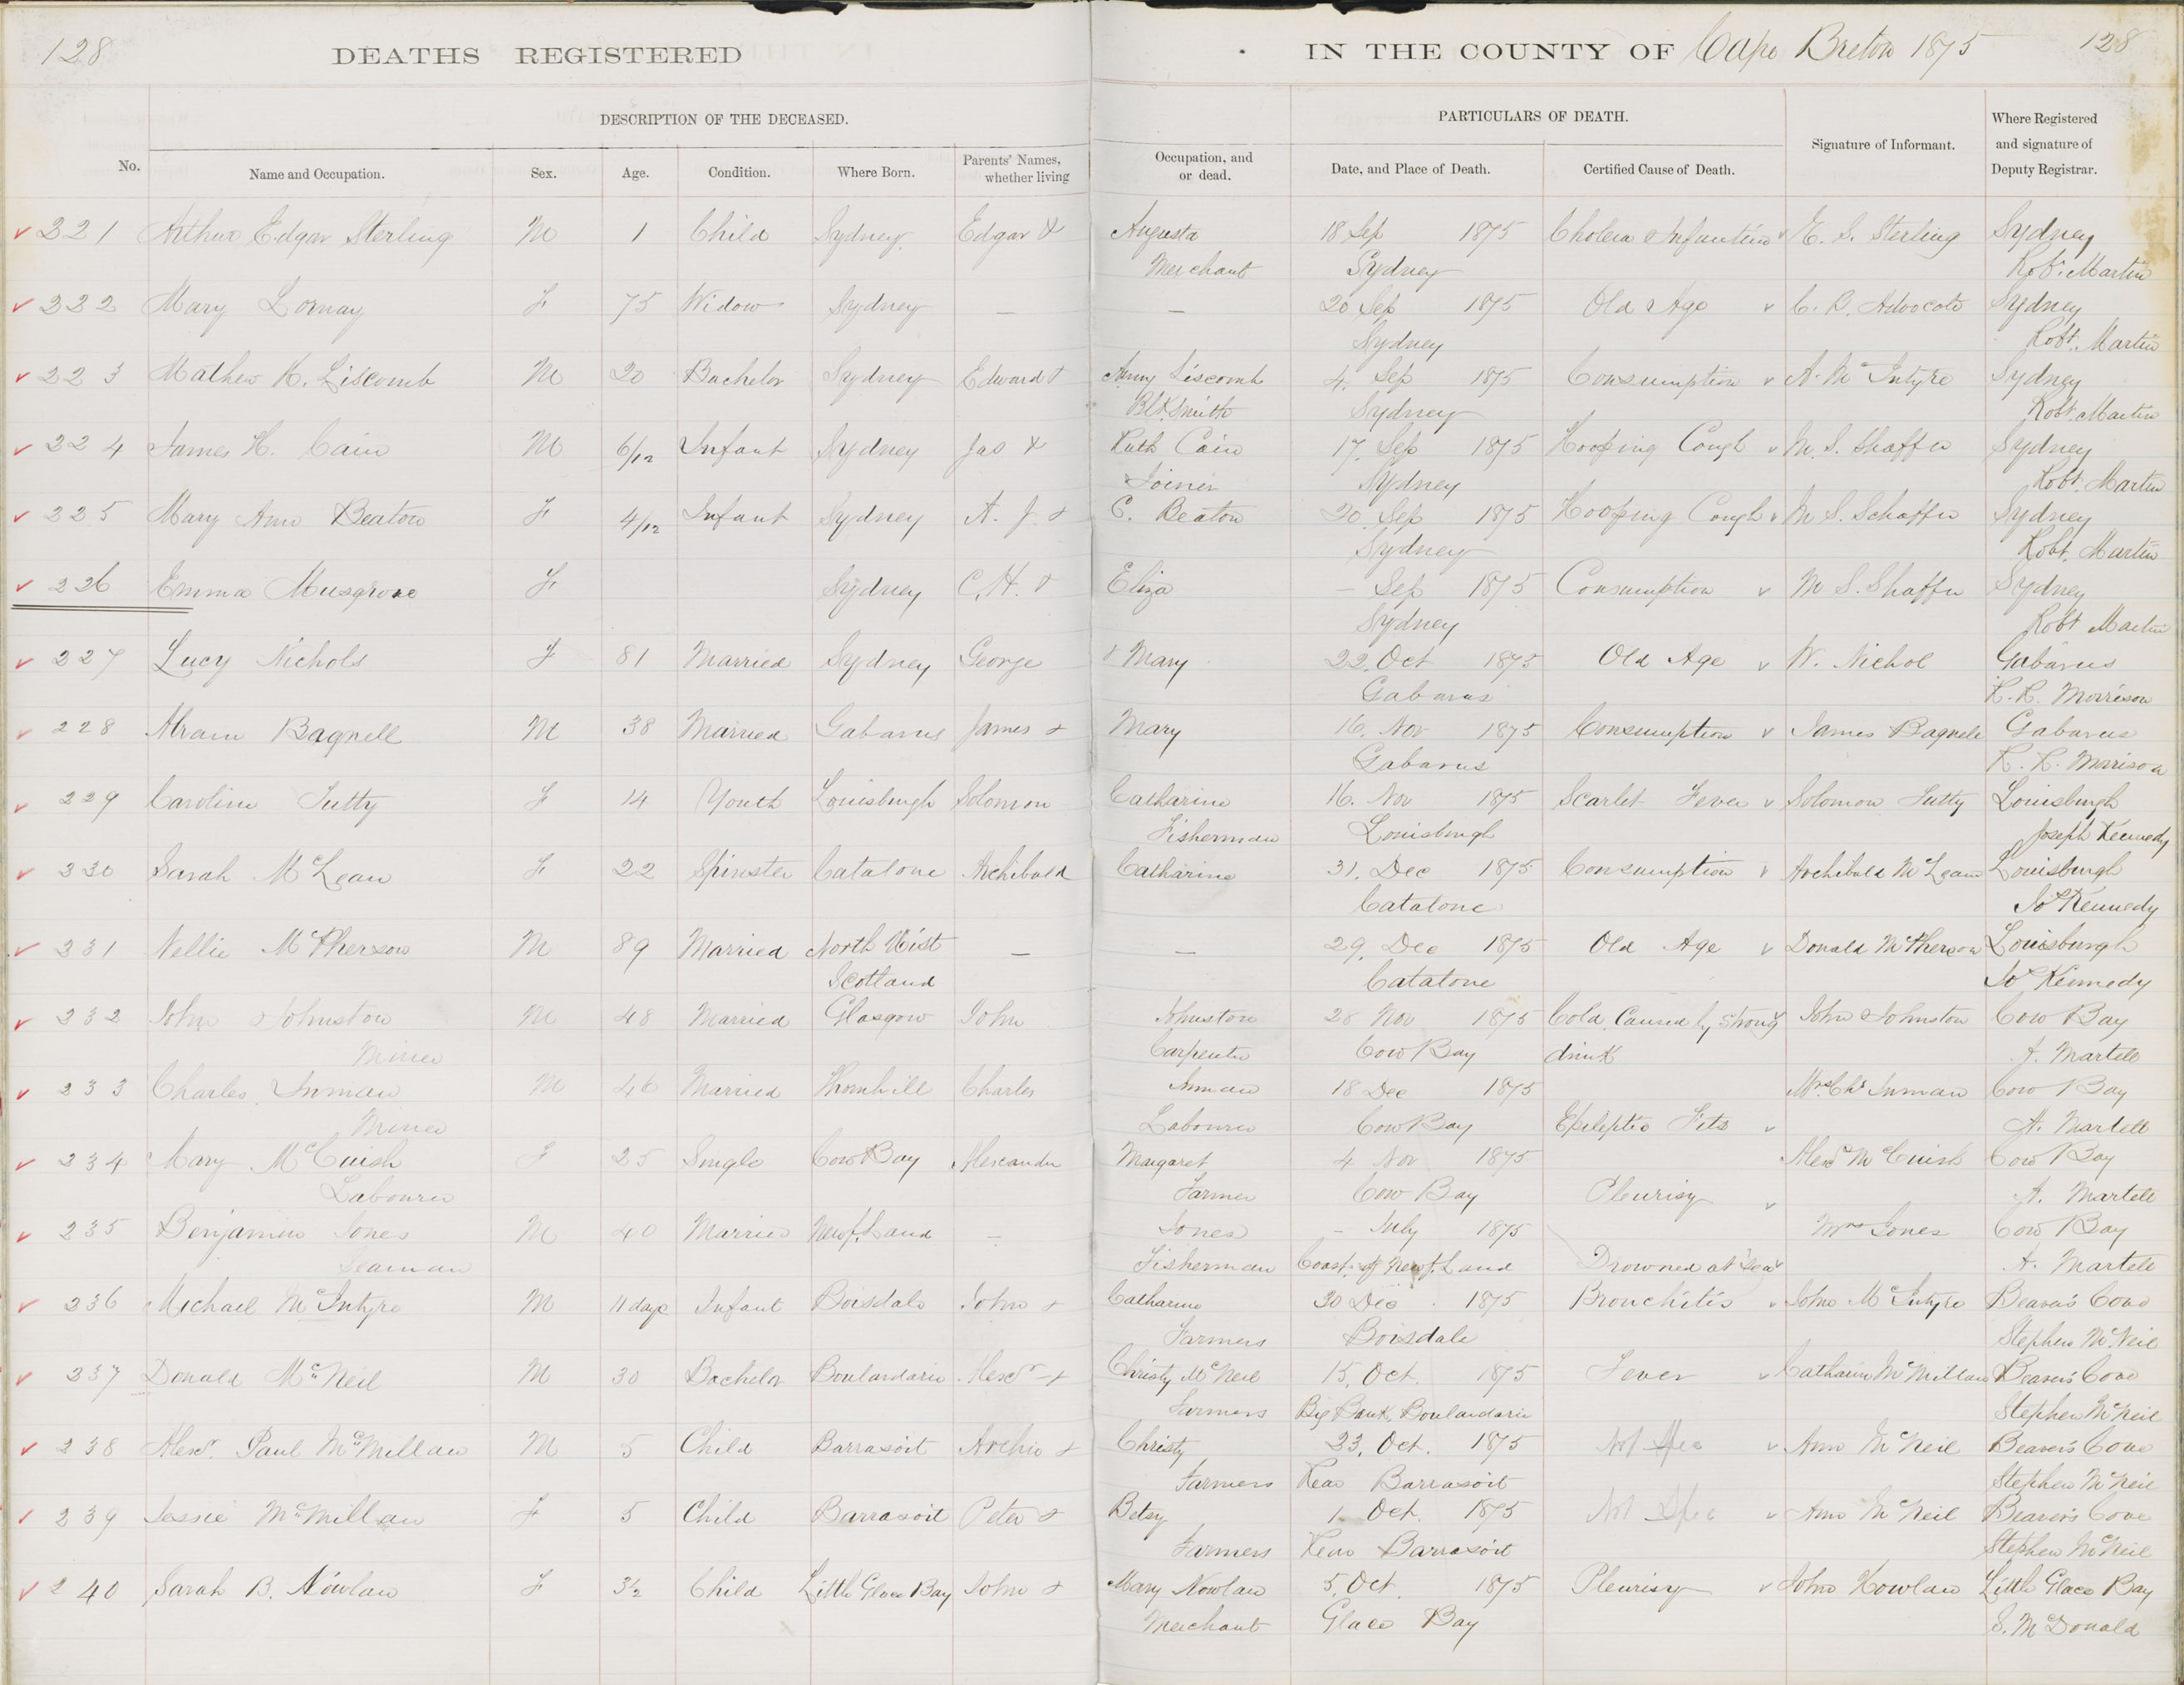 128 DEATHS REGISTERED IN THE COUNTY OF Cape Breton 1875 128
DESCRIPTION OF THE DECEASED. PARTICULARS OF DEATH. Signature of Informant. Where Registered and signature of Deputy Registrar.
No. Name and Occupation. Sex. Age. Condition. Where Born. Parents' Names, whether living Occupation, and or dead. Date, and Place of Death. Certified Cause of Death.
221 Arthur Edgar Sterling M 1 Child Sydney Edgar & Augusta 18 Sep 1875 Cholera Infantum E. S. Sterling Sydney
Merchant Sydney Robt. Martin
222 Mary Lornay F 75 Widow Sydney — — 20 Sep 1875 Old Age C. B. Advocate Sydney
Sydney Robt. Martin
223 Mathew H. Liscomb M 20 Bachelor Sydney Edward & Anny Liscomb 4. Sep 1875 Consumption A. McIntyre Sydney
BlkSmith Sydney Robt. Martin
224 James H. Cain M 6/12 Infant Sydney Jas & Ruth Cain 17. Sep 1875 Hooping Cough M. S. Shaffer Sydney
Joiner Sydney Robt. Martin
225 Mary Ann Beaton F 4/12 Infant Sydney A. J. & C. Beaton 20. Sep 1875 Hooping Cough M S. Schaffer Sydney
Sydney Robt. Martin
226 Emma Musgrove F Sydney C. H. & Eliza — Sep 1875 Consumption M S. Shaffer Sydney
Sydney Robt Martin
227 Lucy Nichols F 81 Married Sydney George & Mary 22. Oct 1875 Old Age W. Nichol Gabarus
Gabarus Morrison
228 Abram Bagnell M 38 Married Gabarus James & Mary 16. Nov 1875 Consumption James Bagnell Gabarus
Gabarus Morrison
229 Caroline Tutty F 14 Youth Louisburgh Solomon Catharine 16. Nov 1875 Scarlet Fever Solomon Tutty Louisburgh
Fisherman Louisburgh Joseph Kennedy
230 Sarah McLean F 22 Spinster Catalone Archibald Catharine 31. Dec 1875 Consumption Archibald McLean Louisburgh
Catalone Jos Kennedy
231 Nellie McPherson M 89 Married North Uist — — 29. Dec 1875 Old Age Donald McPherson Louisburgh
Scotland Catalone Jos Kennedy
232 John Johnston M 48 Married Glasgow John Johnston 28 Nov 1875 Cold Caused by Strong John Johnston Cow Bay
Miner Carpenter Cow Bay drink A. Martell
233 Charles Inman M 46 Married Thornhill Charles Inman 18 Dec 1875 Mrs. Chs Inman Cow Bay
Miner Labourer Cow Bay Epileptic Fits A. Martell
234 Mary McCuish F 25 Single Cow Bay Alexander Margaret 4 Nov 1875 Alexr McCuish Cow Bay
Labourer Farmer Cow Bay Pleurisy A. Martell
235 Benjamin Jones M 40 Married Newf.Land — Jones — July 1875 Mrs Jones Cow Bay
Seaman Fisherman Coast of Newf.Land Drowned at Sea A. Martell
236 Michael McIntyre M 11 days Infant Boisdale John & Catharine 30 Dec 1875 Bronchitis John McIntyre Beaver's Cove
Farmers Boisdale Stephen McNeil
237 Donald McNeil M 30 Bachelor Boulardarie Alexr & Christy McNeil 15. Oct. 1875 Fever Catharine McMillan Beaver's Cove
Farmers Big Bank, Boulardarie Stephen McNeil
238 Alexr. Paul McMillan M 5 Child Barrasoit Archie & Christy 23. Oct. 1875 Not Spec Ann McNeil Beaver's Cove
Farmers Rear Barrasoit Stephen McNeil
239 Jessie McMillan F 5 Child Barrasoit Peter & Betsy 1. Oct. 1875 Not Spec Ann McNeil Beaver's Cove
Farmers Rear Barrasoit Stephen McNeil
240 Sarah B. Nowlan F 3½ Child Little Glace Bay John & Mary Nowlan 5. Oct. 1875 Pleurisy John Nowlan Little Glace Bay
Merchant Glace Bay S. McDonald